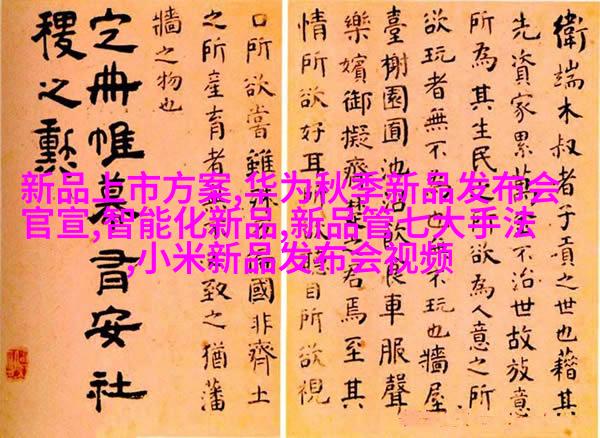 衛端木叔者子貢之世也藉其
先資家累萬金不治世故放意
所為其生民之所欲為人意之所
欲玩者無不為也無不玩也牆屋
臺榭園囿池沼飲食車服聲
樂嬪御擬齊楚之君焉至其
情所欲好耳所欲聽目所欲視
口所欲嘗雖殊方偏國非齊土
之所產育者無不必致之猶藩
牆之物也
定冊帷幕有安社
稷之勲
新品上市方案,华为秋季新品发布会
官宣,智能化新品,新品管七大手法
,小米新品发布会视频